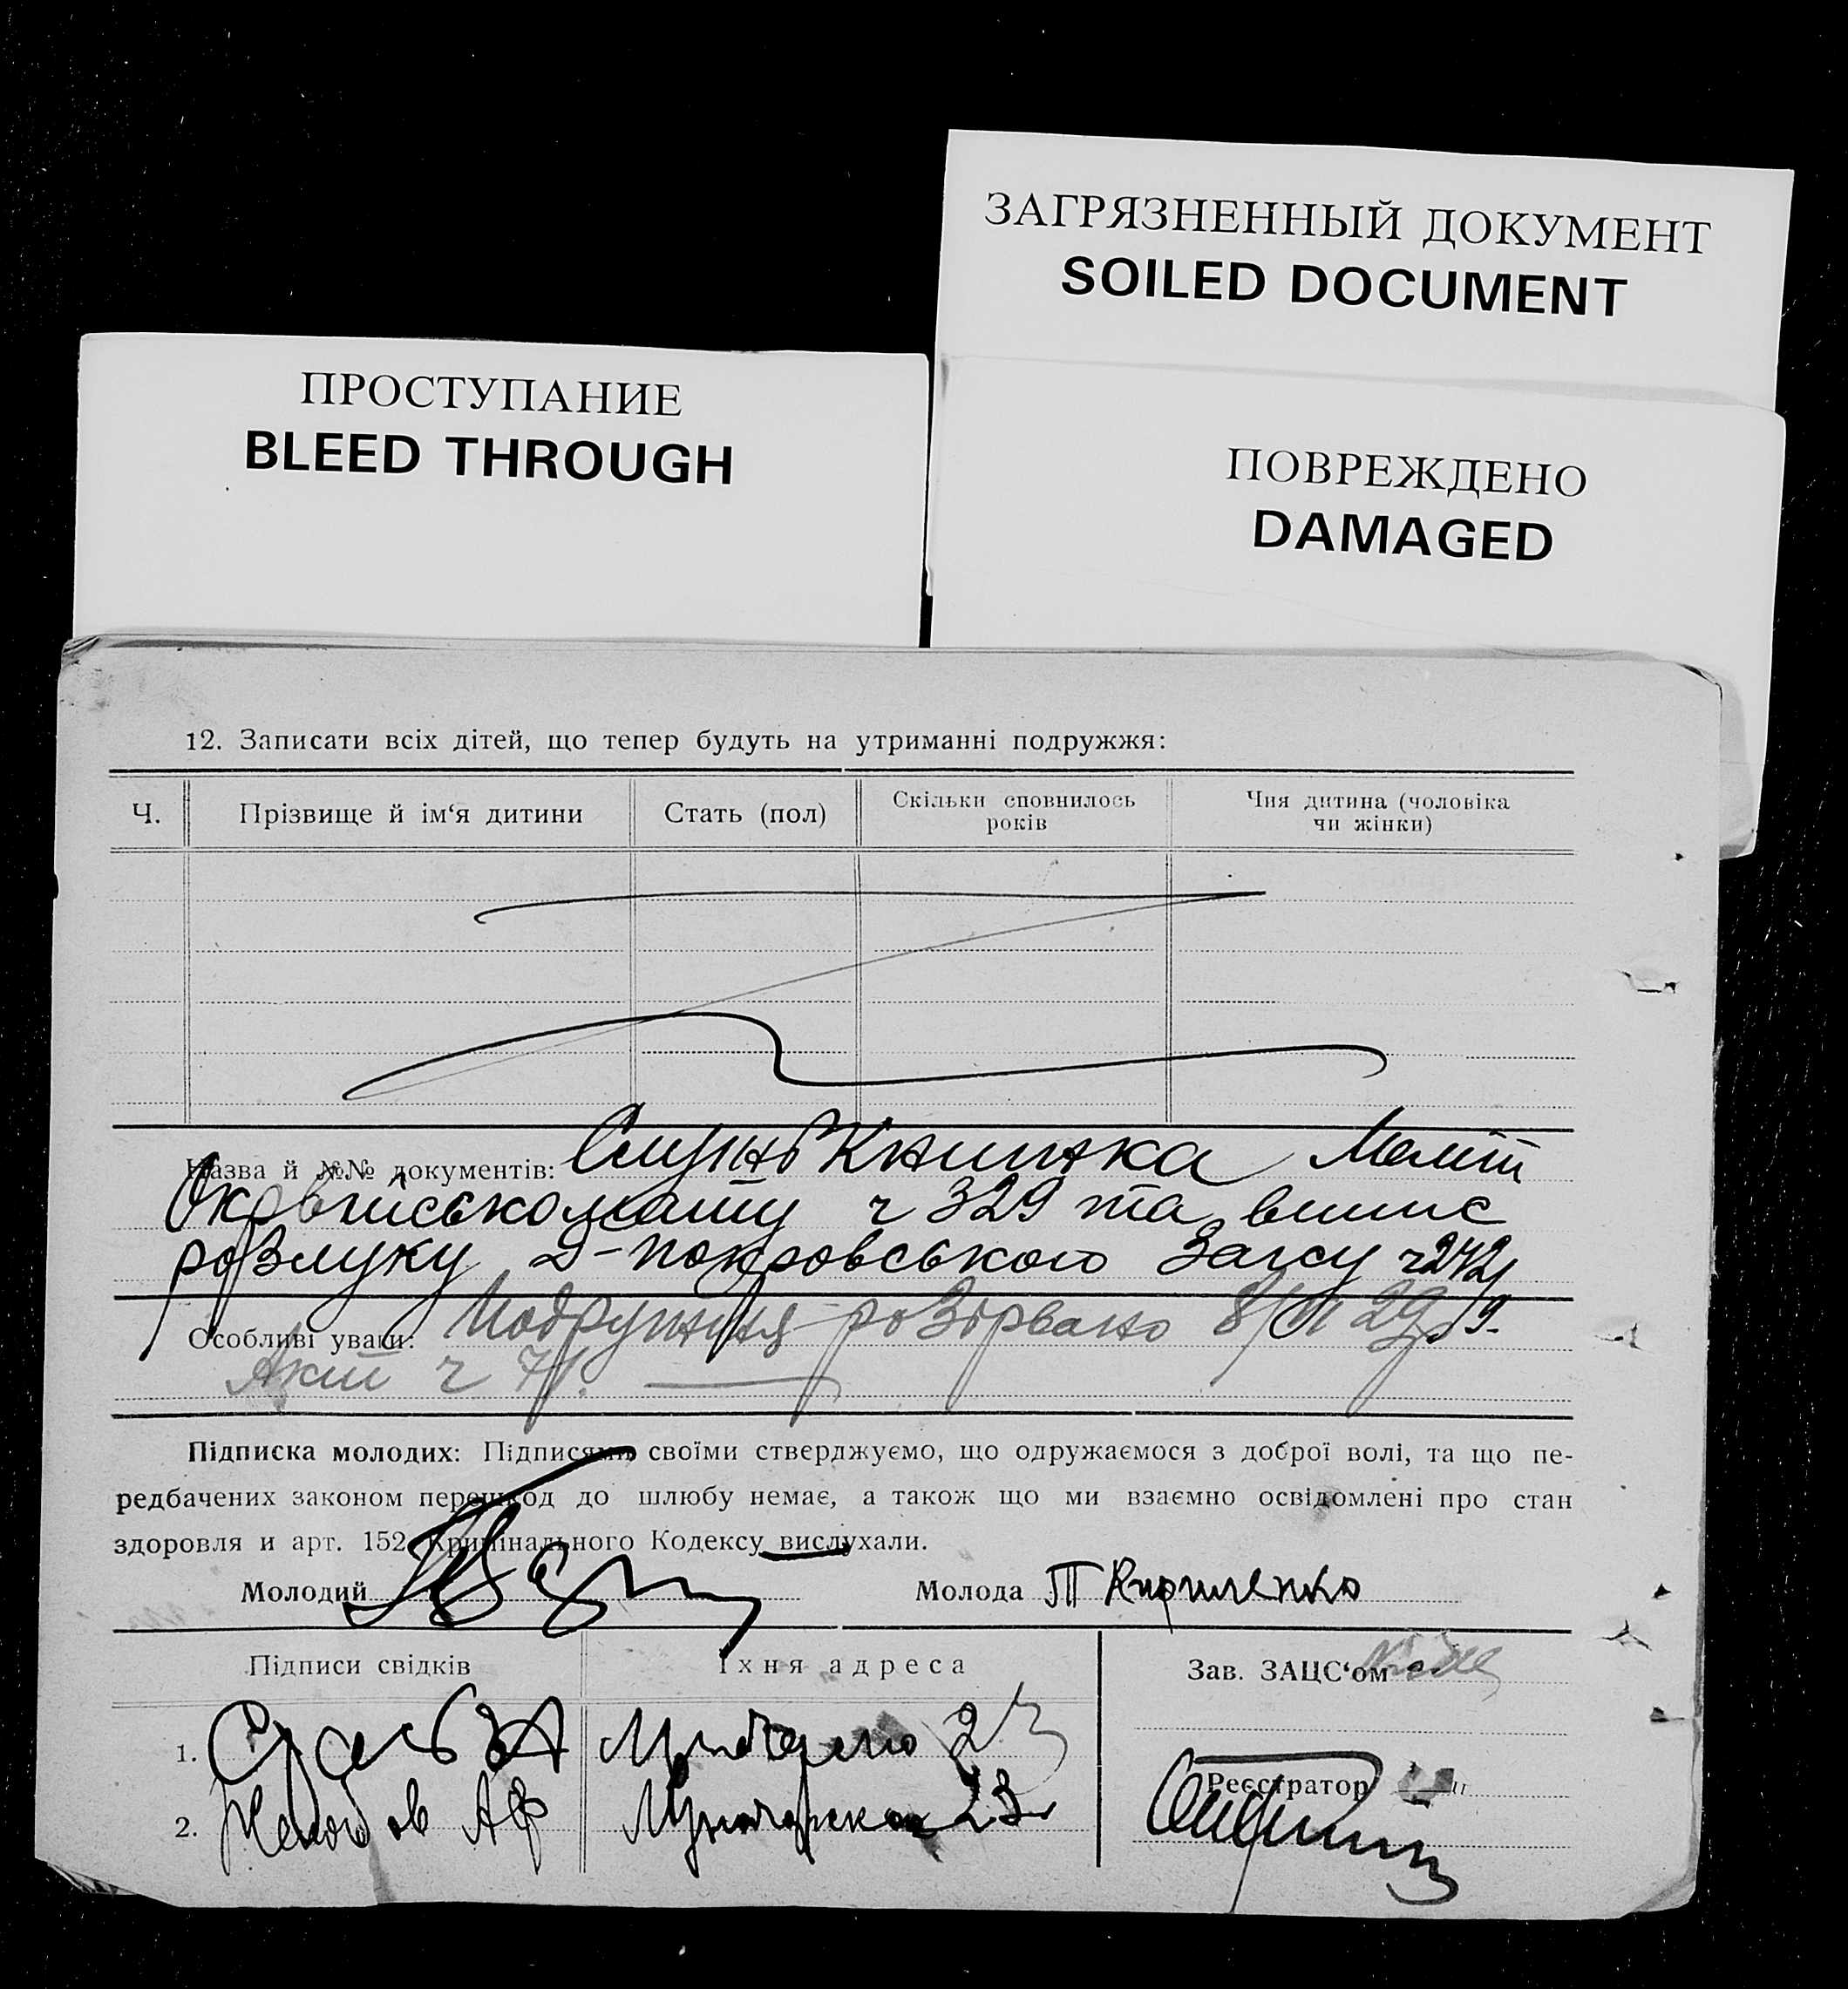 ЗАГРЯЗНЕННЫЙ ДОКУМЕНТ
SOILED DOCUMENT
ПРОСТУПАНИЕ
BLEED THROUGH
ПОВРЕЖДЕНО
DAMAGED
12. Записати всіх дітей, що тепер будуть на утриманні подружжя:
Ч.
Прізвище й ім‘я дитини
Стать (пол)
Скільки сповнилось
років
Чия дитина (чоловіка
чи жінки)
Назва й №№ документів: Книжка Меліт
Окрвійськомату ч 329 та випис
розлуку Д-Покровського Загсу ч 242
Особливі уваги: Подружжя розірвано 8/VI 29 р.
Акт ч 71.
Підписка молодих: Підписями своїми стверджуємо, що одружаємося з доброї волі, та що пе-
редбачених законом перешкод до шлюбу немає, а також що ми взаємно освідомлені про стан
здоровля и арт. 152 Кримінального Кодексу вислухали.
Молодий
Молода Т Кириленко
Підписи свідків
Їхня адреса
Зав. ЗАЦС‘ом
1. 23
2. АФ 23
Реєстратор